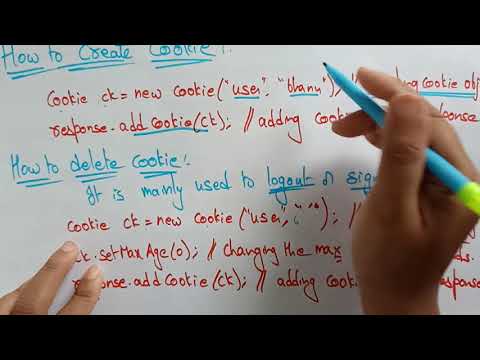 How to Create Cookie:
Cookie ck = new Cookie("user", "bhanu"); // cookie obj
response.addCookie(ck); // adding cook
How to delete Cookie:
It is mainly used to logout or sig
Cookie ck = new Cookie("user", ""); //
ck.setMaxAge(0); // changing the max
response.addCookie(ck); // adding cook response